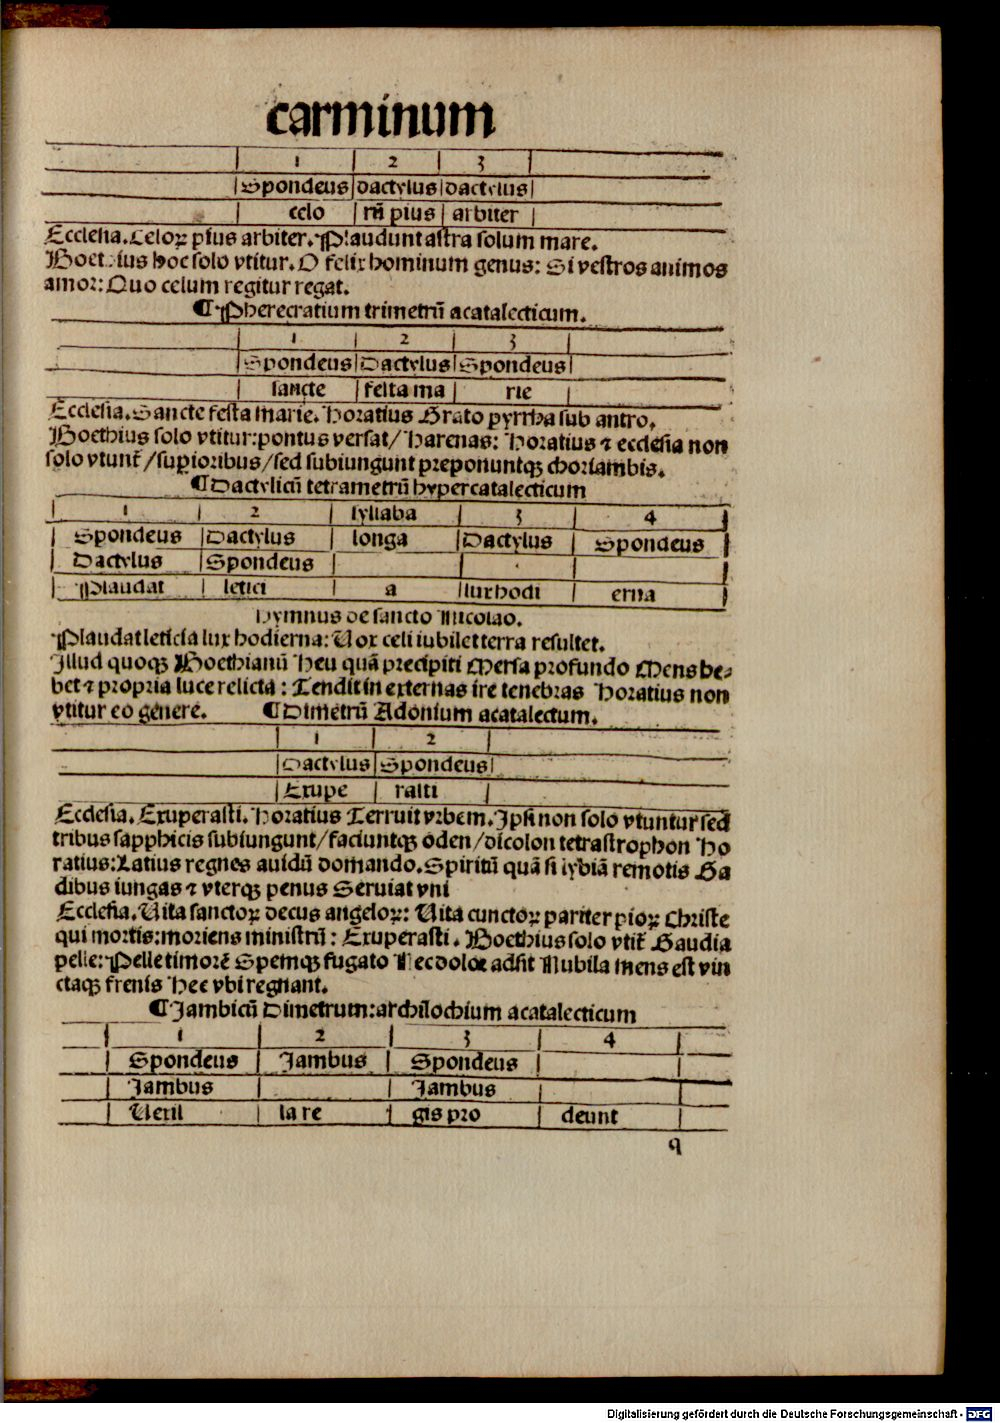 carminum
1 2 3
Spondeus dactylus dactylus
celo rū pius arbiter
Ecclesia. Celoꝝ pius arbiter. Plaudunt astra solum mare.
Boetius hoc solo vtitur. O felix hominum genus: Si vestros animos
amor: Quo celum regitur regat.
¶ Pherecratium trimetrū acatalecticum.
1 2 3
Spondeus Dactylus Spondeus
sancte festa ma rie
Ecclesia. Sancte festa marie. Horatius Grato pyrrha sub antro.
Boethius solo vtitur: pontus versat/ harenas: Horatius ⁊ ecclesia non
solo vtunt̄ /suꝑioribus/sed subiungunt preponuntqꝫ choriambis.
¶ Dactylicū tetrametrū hypercatalecticum
1 2 syllaba 3 4
Spondeus Dactylus longa Dactylus Spondeus
Dactylus Spondeus
Plaudat letici a lux hodi erna
Hymnus de sancto Nicolao.
Plaudat leticia lux hodierna: Vox celi iubilet terra resultet.
Illud quoqꝫ Boethianū Heu quā precipiti Mersa profundo Mens he⸗
bet ⁊ propria luce relicta: Tendit in externas ire tenebras Horatius non
vtitur eo genere. ¶ Dimetrū Adonium acatalectum.
1 2
Dactylus Spondeus
Exupe rasti
Ecclesia. Exuperasti. Horatius Terruit vrbem. Ipsi non solo vtuntur sed
tribus sapphicis subiungunt/faciuntqꝫ oden/dicolon tetrastrophon Ho
ratius: Latius regnes auidū domando. Spiritū quā si lybiā remotis Ga
dibus iungas ⁊ vterqꝫ penus Seruiat vni
Ecclesia. Vita sanctoꝝ decus angeloꝝ: Vita cunctoꝝ pariter pioꝝ Christe
qui mortis: moriens ministrū: Exuperasti. Boethius solo vtit̄ Gaudia
pelle: Pelle timorē Spemqꝫ fugato Nec dolor adsit Nubila mens est vin
ctaqꝫ frenis Hec vbi regnant.
¶ Jambicū Dimetrum: archilochium acatalecticum
1 2 3 4
Spondeus Jambus Spondeus
Jambus Jambus
Vexil la re gis pro deunt
q
Digitalisierung gefördert durch die Deutsche Forschungsgemeinschaft - DFG